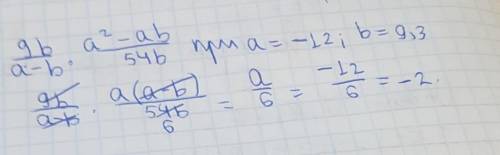 9b/(a-b) · (a² - ab)/54b при a = -12; b = 9,3
9b/(a-b) · a(a-b)/54b 6 = a/6 = -12/6 = -2.